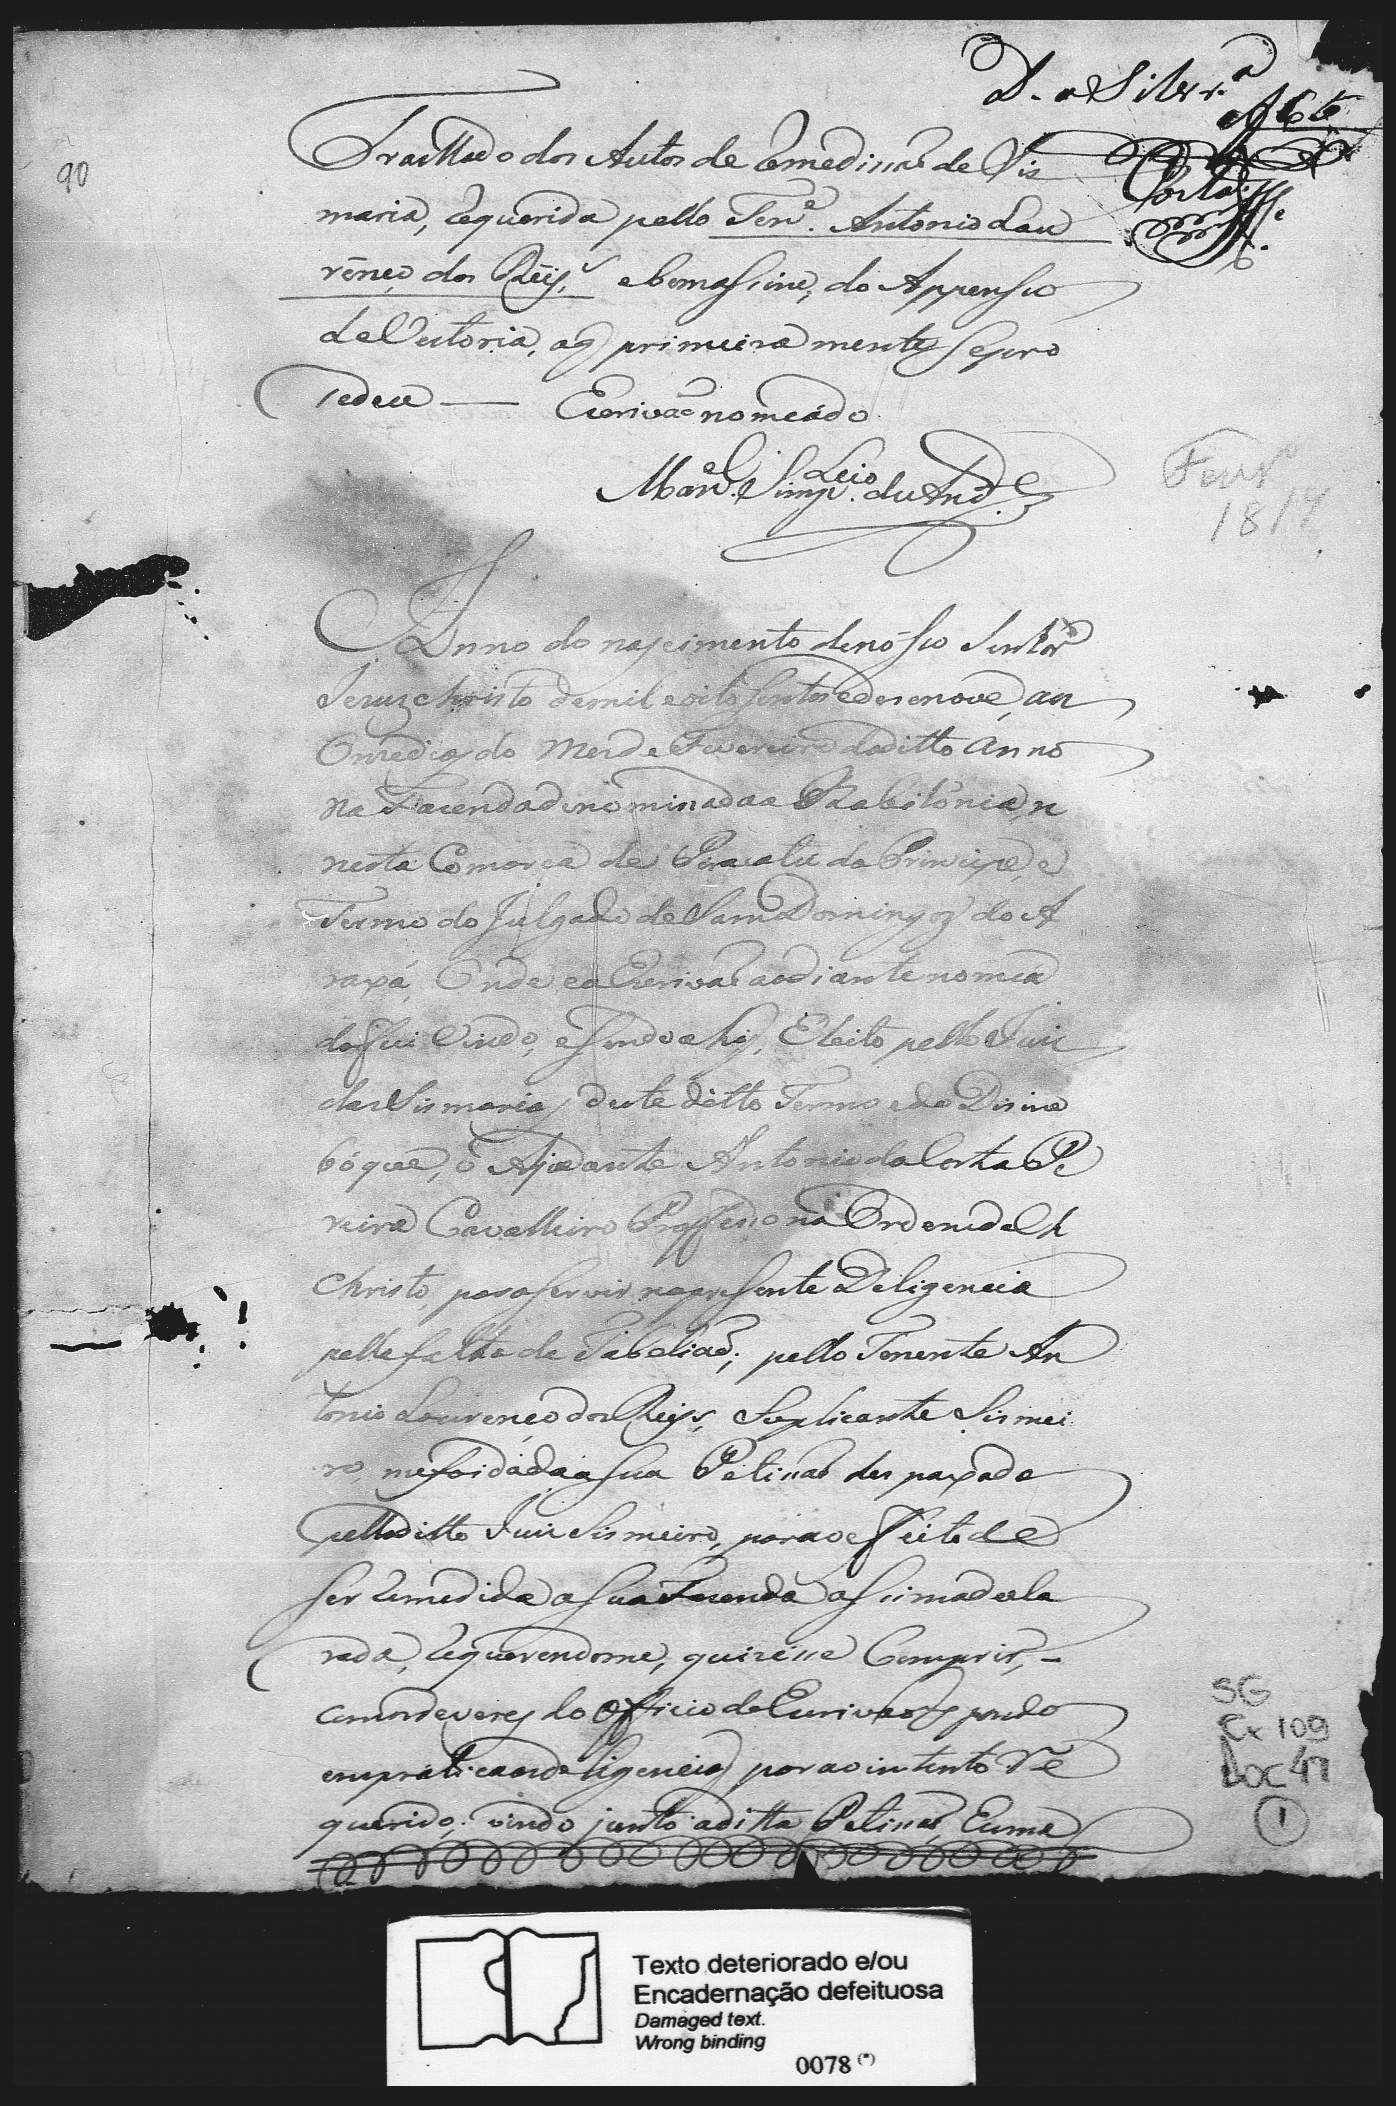 D. a Silvr.ª
90
Trasllado dos Autos de Remedissaõ de Sis
maria, requerida pello Ten.e Antonio Lau
rēnço dos Reys, e bem assim, do Appensso
de Vestoria, aq primeira mente se pro
sedeu — Escrivaõ nomeádo
Man.el Simp.Leio de And.e
Fevr.º
1819
Anno do nascimento de nósso Senhor
Jesus christo de mil e oito sentos e desenove, aos
Onze dias do Mes de Fevereiro do ditto anno
na Facenda denominada a Babilónia, n
nesta Comarca de Paracatu do Principe e
Termo do Julgado de Sam Domingos do A
raxá, Onde eo Escrivaõ ao diante nomea
do fui Vindo, e sendo ahy, Eleito pello Juis
das Sismarias deste ditto Termo e do Disine
bóque, o Ajudante Antonio da Costa Pe
reira Cavalleiro Proffesso na Ordem de Ch
Christo, para servir na presente Deligencia
pella falta de Tabeliaõ; pello Tenente An
tonio Lourenço dos Reys, Suplicante Sismei
ro, me foi dáda a sua Petissaõ des paxada
pello ditto Juis Sismeiro, para o effeito de
ser remedida a sua Facenda assima decla
rada, requerendome, quizésse Comprir, –
com os deveres do Officio de Escrivaõ
em praticar as deligencias para o intento re
querido; vindo junto a ditta Petissaõ, Euma
SG
Cx 109
Doc 47
1
Texto deteriorado e/ou
Encadernação defeituosa
Damaged text.
Wrong binding
0078 (*)